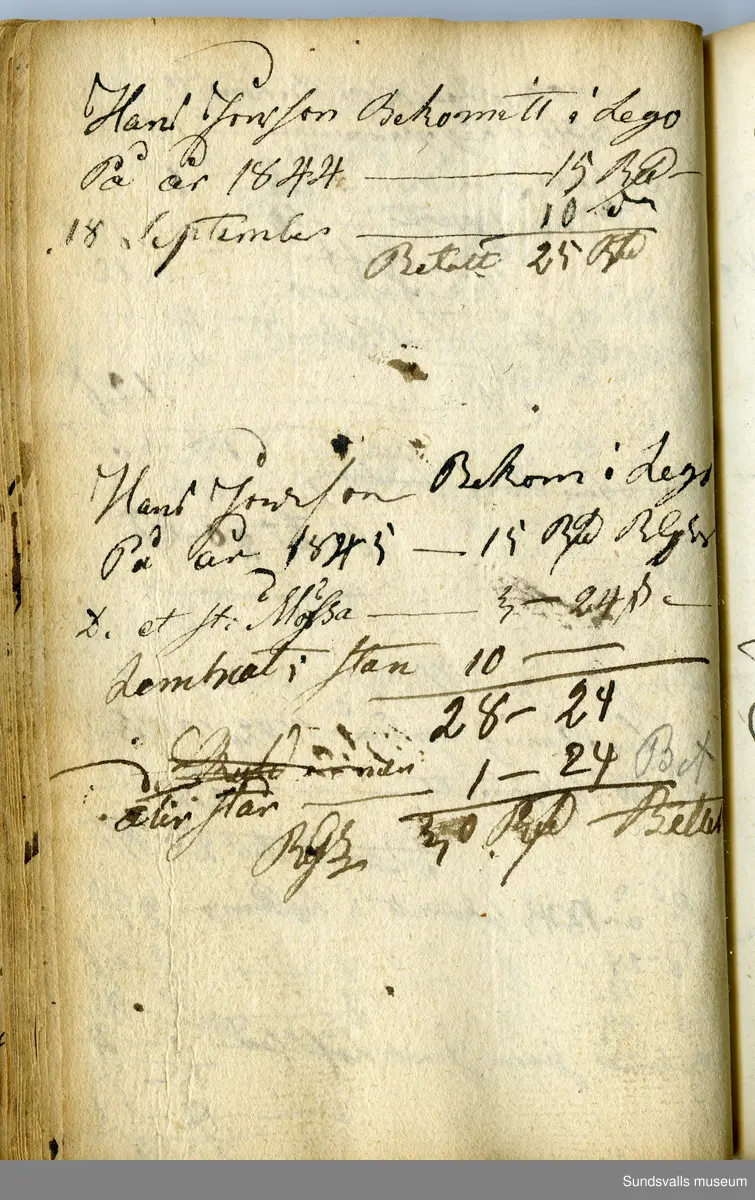 Hans Jonson Bekomitt i Lego
På år 1844 — 15 Rd —
10 d
18 September
Betalt 25 Rd
Hans Jonson Bekom i Lego
På år 1845 — 15 Rd RGs
D. et st: Mössa — 3 — 24 s
Lembnat i stan 10 —
28 — 24
1 — 24 Bet
åter står —
RGs 30 Rd Betalt
Sundsvalls museum